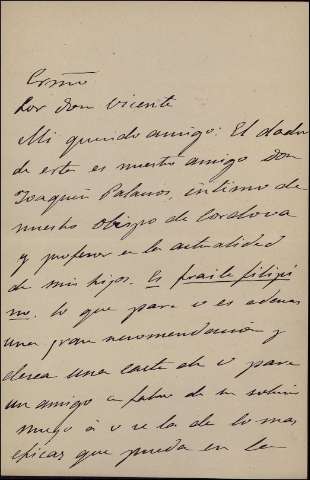 Exmo
Sor Don Vicente
Mi querido amigo: El dador
de esta es nuestro amigo Don
Joaquin Palacios, intimo de
nuestro obispo de Cordova
y profesor en la actualidad
de mis hijos. Es fraile filipi
no. lo que para v es ademas
una gran recomendación y
desea una carta de v para
un amigo a favor de su sobrino
ruego á v se la de lo mas
eficaz que pueda en la